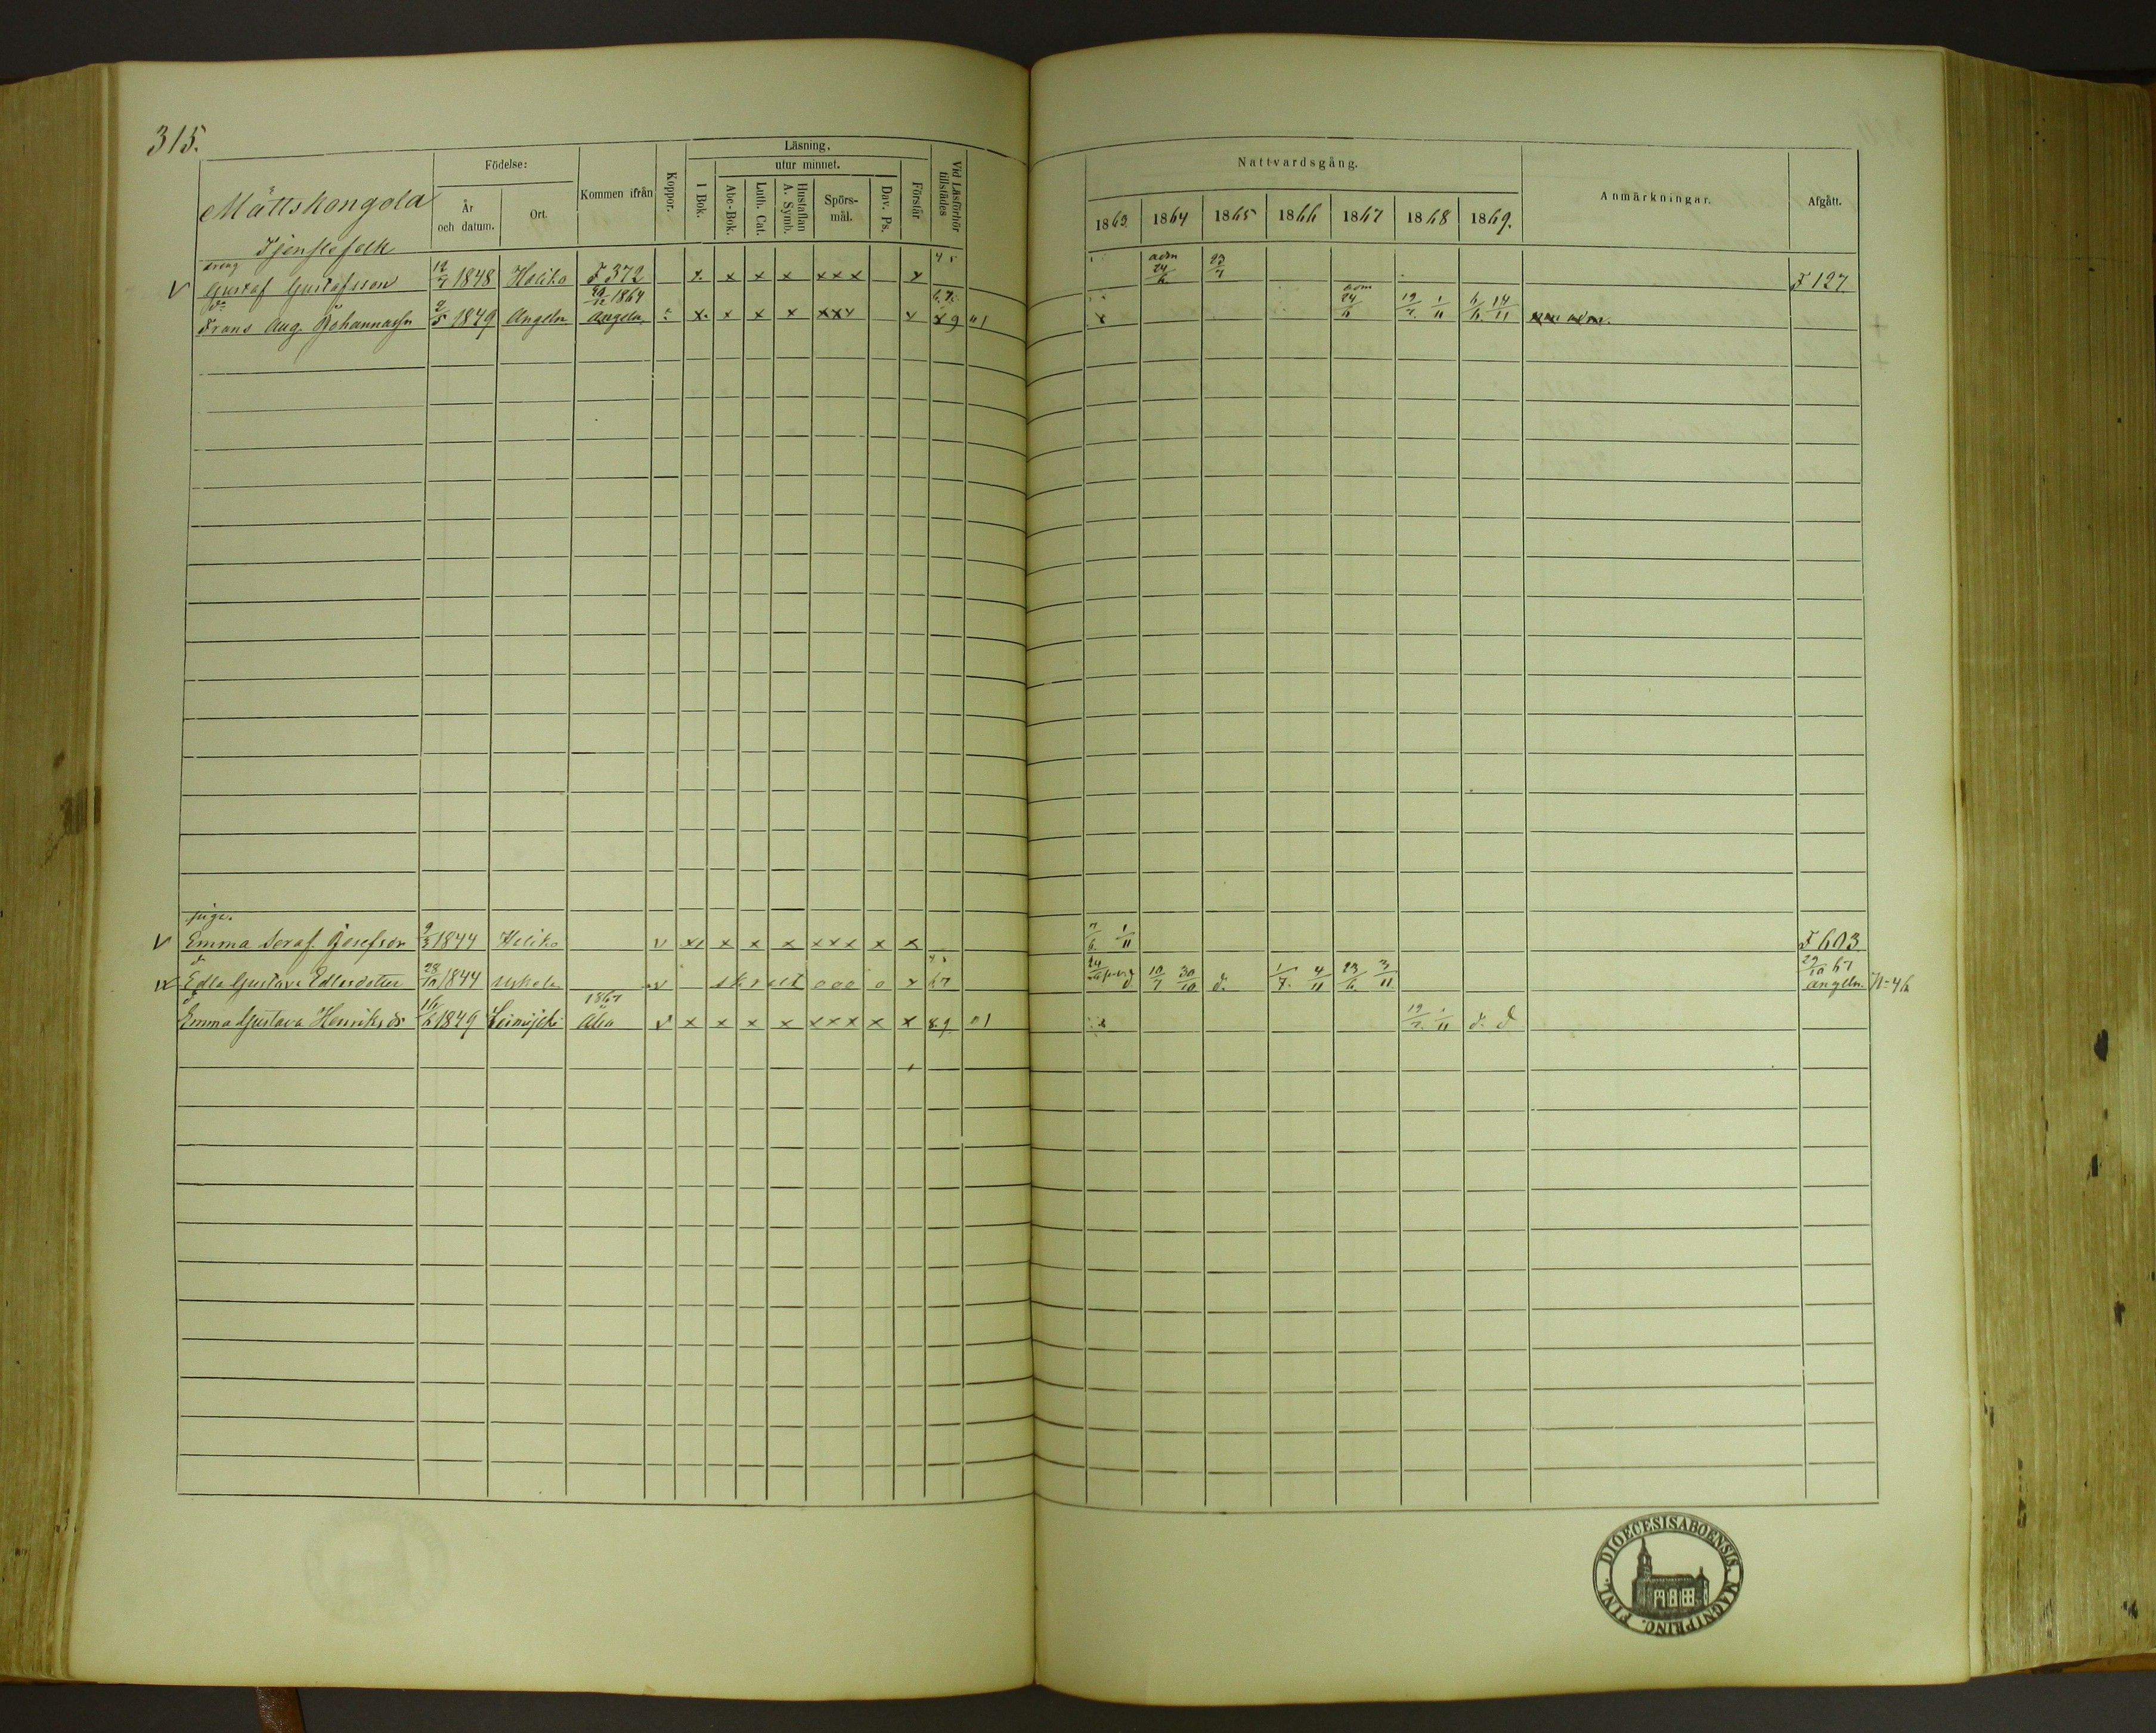 315.
Födelse:
Kommen ifrån
Koppor.
Läsning.
utur minnet.
Vid Läsförhör tillstädes
År och datum.
Ort.
I Bok.
Abc-Bok.
Luth. Cat.
Hustaflan A. Symb.
Spörs-mål.
Dav. Ps.
Förstår
Nattvardsgång.
1863 1864 1865 1866 1867 1868 1869.
Anmärkningar.
Afgått.
Tjenstefolk
dreng
Gustaf Gustafsson 12/7 1848 Haliko F 372 x x x x xxx x 4 5 adm 24/6. F 127
do
Frans Aug. Johannason 2/5 1849 Angeln 1864 Angeln x x x x xxx x 6. 7. 9 "1 adm 24/6 19/7. 1/11 6/6. 14/11
piga.
Emma Seraf. Josefsson 9/3 1844 Haliko v x x x x xxx x x 7/6. 1/11 F 603.
d
Edla Gustava Edlasdotter 28/10 1844 Uskela v 000 0 x 67 10/7 30/10 d. 1/7. 4/11 23/6. 3/11 29/10 67 angeln.
d
Emma Gustava Henriksdr 16/6 1849 1867 Åbo v x x x x xxx x x 8. 9. "1 19/7. 1/11 d. d
DIOECESIS ABOENSIS. MAGNI PRINC. FINL.